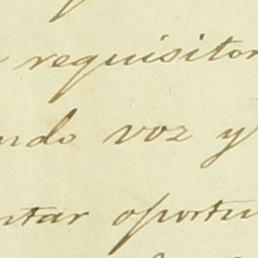 requisitor
ndo voz y
ntar oportu